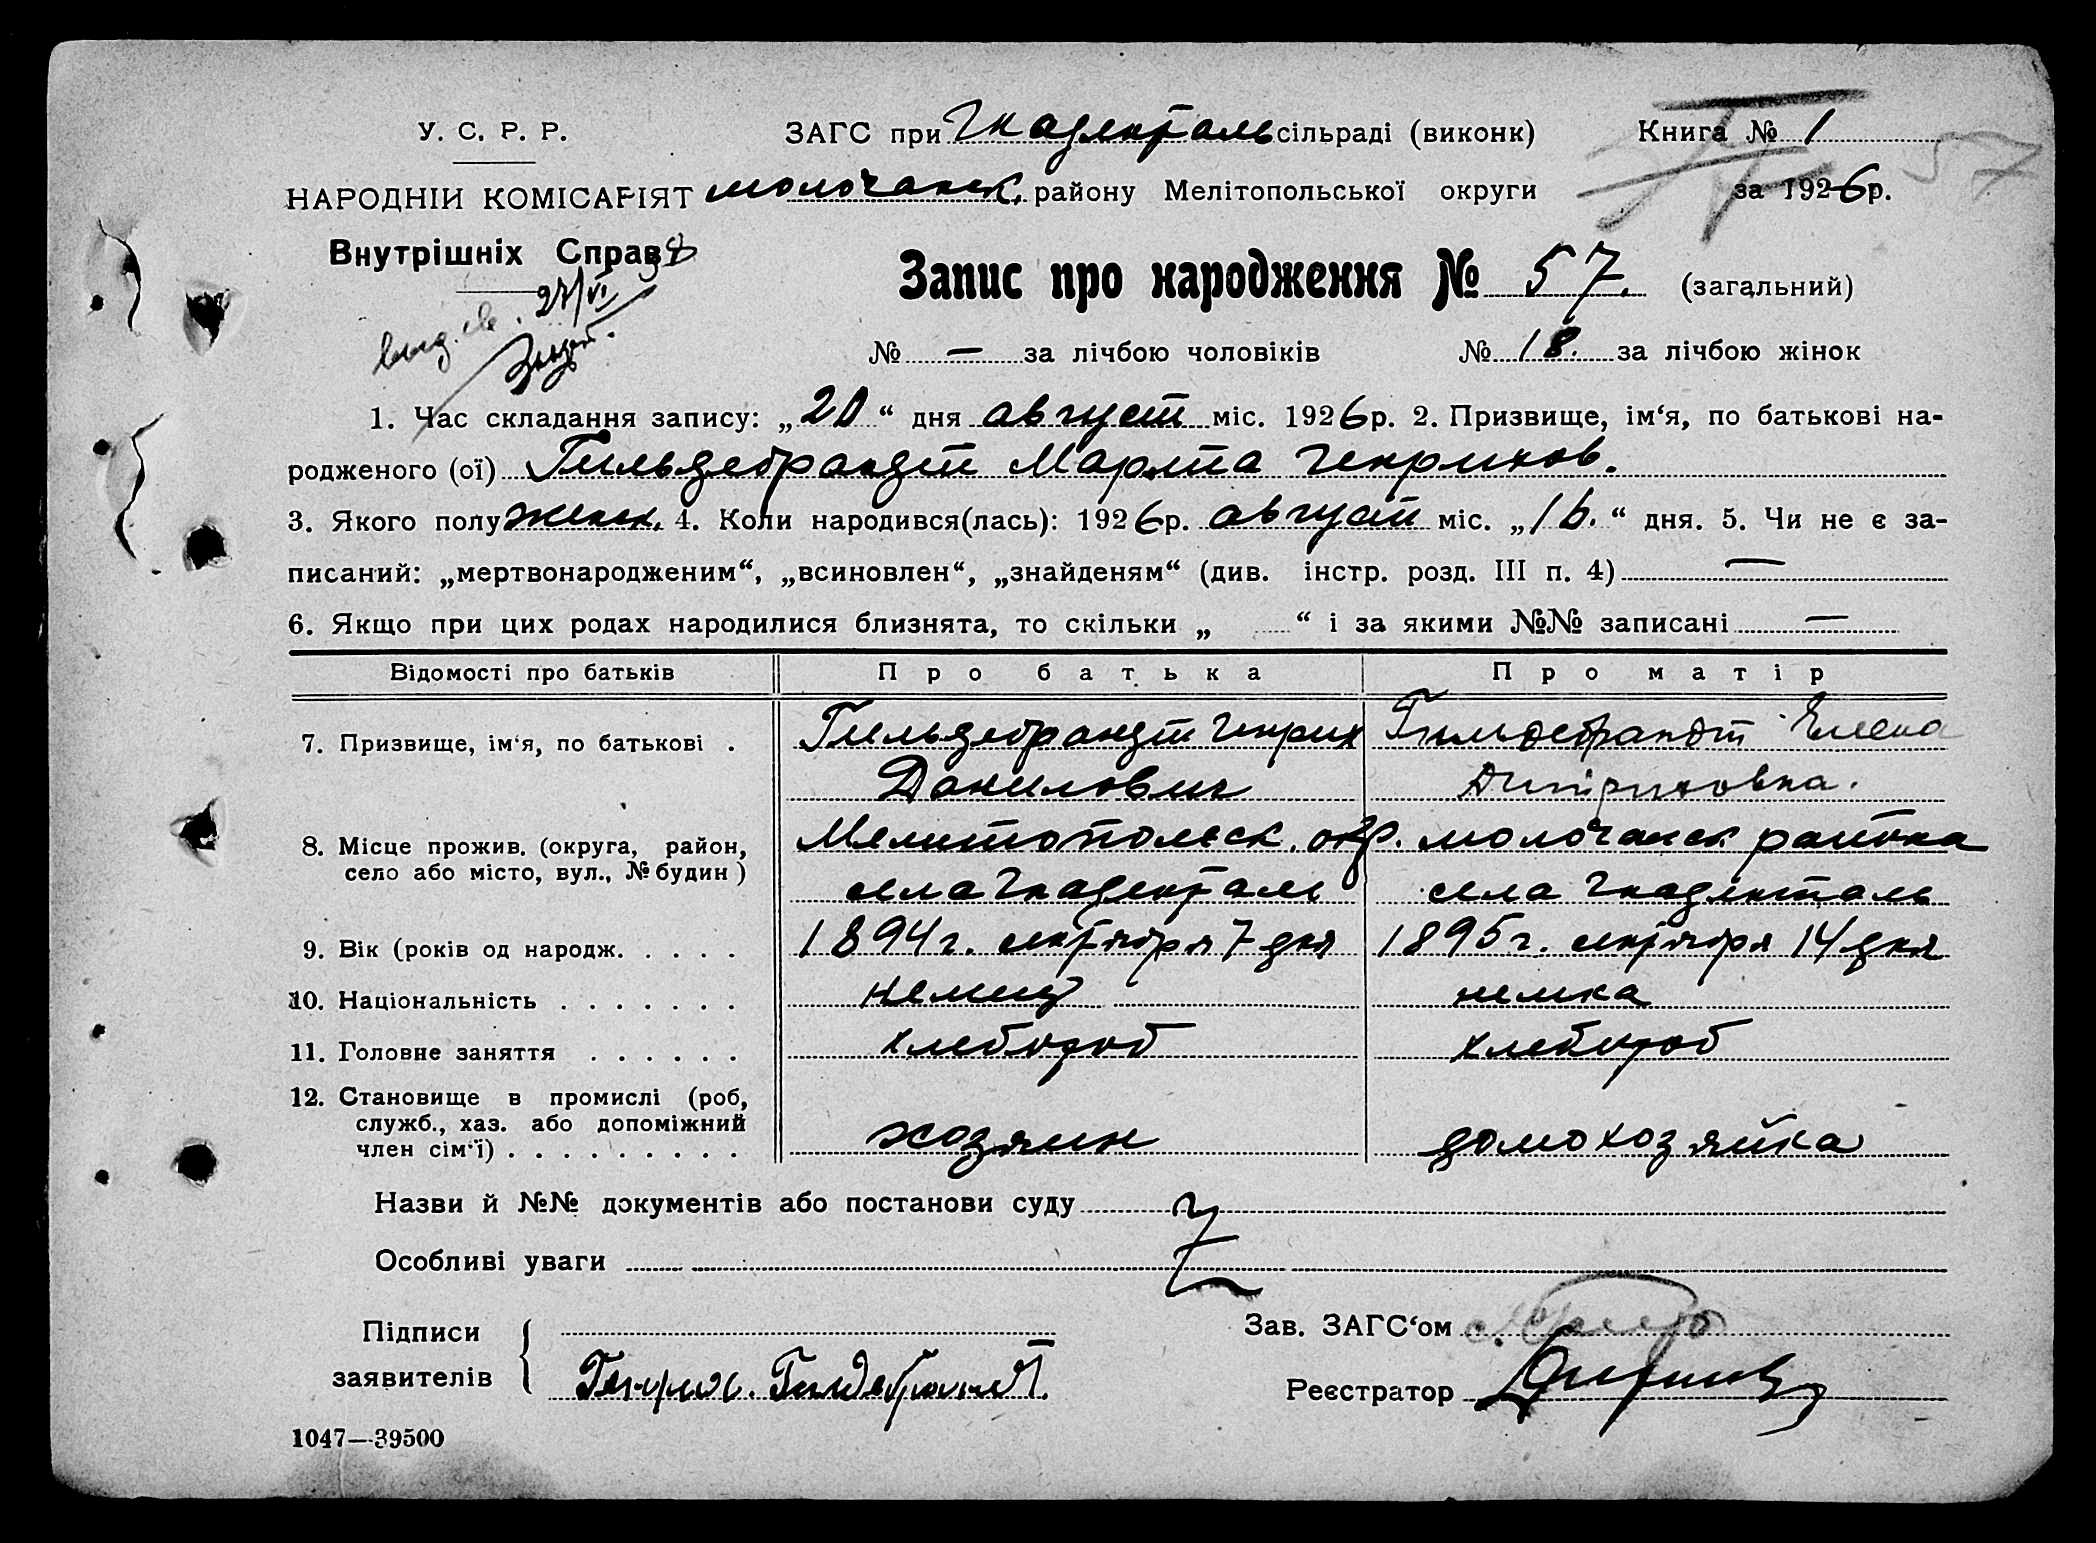 У. С. Р. Р.
ЗАГС при Гнаденталь сільраді (виконк)
Книга № 1
57
НАРОДНІЙ КОМІСАРІЯТ
Молочанск. району Мелітопольської округи
за 1926р.
Внутрішніх Справ
27/VI
Запис про народження № 57. (загальний)
№ — за лічбою чоловіків № 18. за лічбою жінок
1. Час складання запису: „20“ дня август міс. 1926р. 2. Призвище, ім‘я, по батькові на-
родженого (ої) Гильдебрандт Марита Генрихов.
3. Якого полу женск. 4. Коли народився(лась): 1926р. август міс. „16.“ дня. 5. Чи не є за-
писаний: „мертвонародженим“, „всиновлен“, „знайденям“ (див. інстр. розд. III п. 4) —
6. Якщо при цих родах народилися близнята, то скільки „ “ і за якими №№ записані —
Відомості про батьків Про батька Про матір
7. Призвище, ім‘я, по батькові . Гильдебрандт Генрих Гильдебрандт Елена
Данилович Дитриховна.
8. Місце прожив. (округа, район, Мелитопольск. окр. Молочанск района
село або місто, вул., № будин) села Гнаденталь села Гнаденталь
9. Вік (років од народж. . . . . 1894г. октября 7 дня 1895г. октября 14 дня
10. Національність . . . . . . . немец немка
11. Головне заняття . . . . . . хлебороб хлебороб
12. Становище в промислі (роб,
служб., хаз. або допоміжний
член сім‘ї) . . . . . . . . . хозяин домохозяйка
Назви й №№ документів або постанови суду
Особливі уваги
Підписи
заявителів
Зав. ЗАГС‘ом
Генрих. Гилдебрандт.
Реєстратор
1047—39500